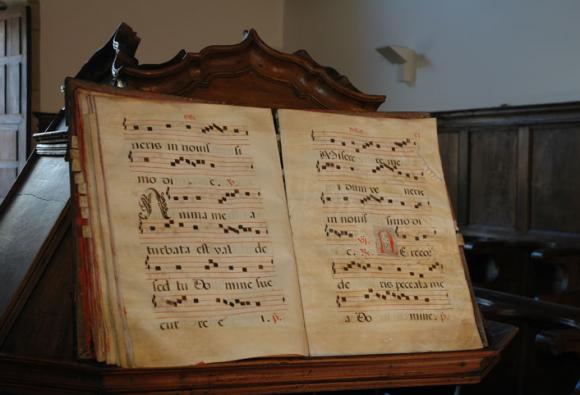 neris in nouiſ ſi
mo di e. ℟.
A nima me a
turbata eſt val de
ſed tu Do mine ſuc
cur re
Miſere re me
i dum ve neris
in nouiſ ſimo di
e. ℟. N E recor
de ris peccata me
a Do mine. ℟.